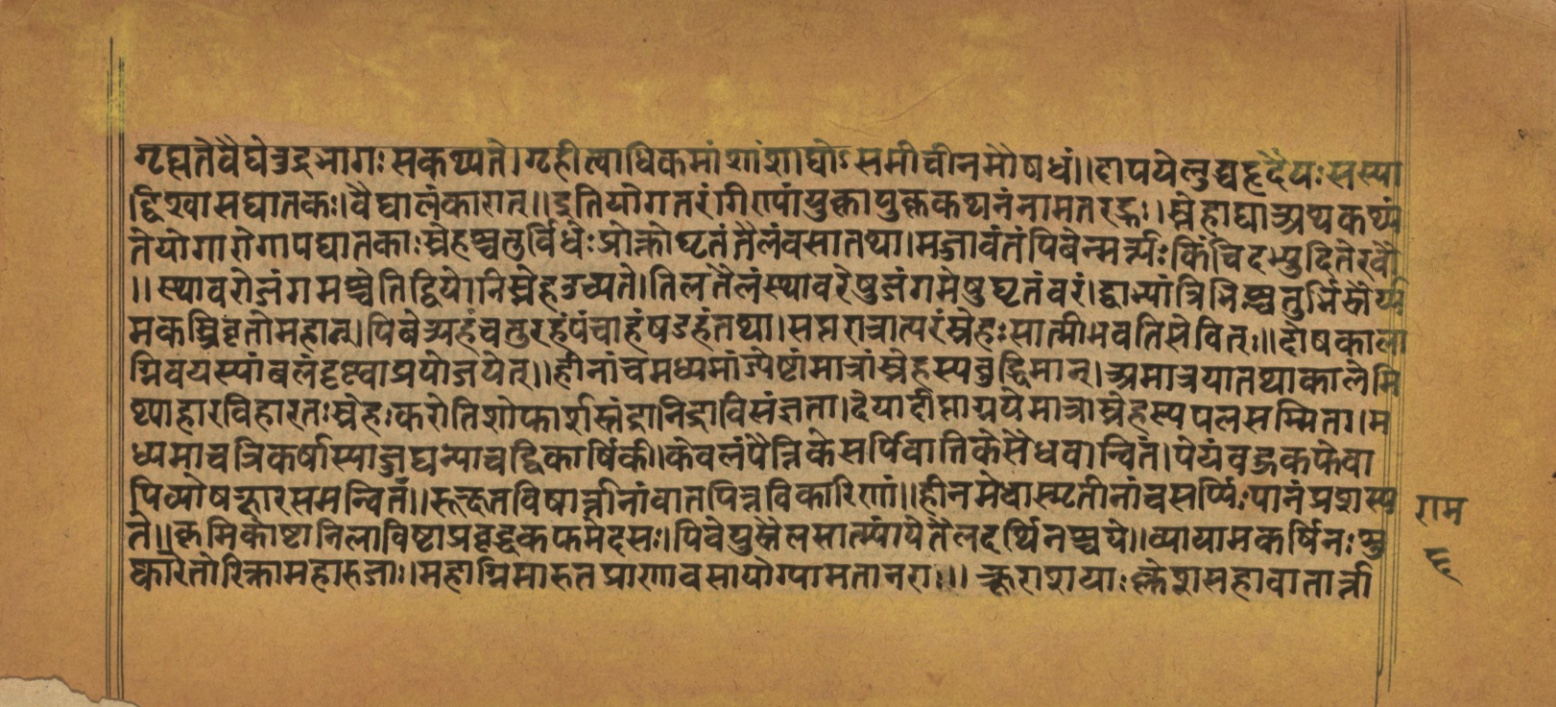 गृह्यतेवैद्यैरुद्रभागः सकथ्यते। गृहीत्वाधिकमांशांशाद्योऽसमीचीनमौषधं।। दापयेलुब्धहृदैयः सस्या
द्विश्वासघातकः। वैद्यालंकारात्।। इतियोगतरंगीण्यांयुक्तायुक्तकथनंनामतरङ्गः।। स्नेहाद्याअथकथ्यं
तेयोगारोगापघातकाः स्नेहश्चतुर्विधः प्रोक्तोघृतंतैलंवसातथा। मज्जावंतंपिबेन्मर्त्यः किंचिदभ्युदितेरवौ
।। स्थावरोजंगमश्चेतिद्वियोनिस्नेहउच्यते। तिलतैलंस्थावरेषुजंगमेषुघृतंवरं। द्वाभ्यांत्रिभिश्चतुर्भिस्तैर्य्य
मकस्त्रिवृतोमहान्। पिबेत्र्यहंचतुरहंपंचाहंषडहंतथा। सप्तरात्रात्परंस्नेहः सात्मीभवतिसेवितः।। दोषकाला
ग्निवयस्यांबलंदृष्ट्वाप्रयोजयेत्।। हीनांचमध्यमांज्येष्टांमात्रांस्नेहस्यबुद्धिमान्। अमात्रयातथाकालेमि
थ्याहारविहारतः स्नेहः करोतिशोफार्शस्तंद्रानिद्राविसंज्ञता। देयादीप्ताग्नयेमात्रास्नेहस्यपलसम्मिता। म
ध्यमाचत्रिकर्षास्याज्जघन्याचद्विकार्षिकी। केवलंपैत्तिकेसर्पिर्वातिकेसैंधवान्वितं। पेयंवह्नकफेवा
पिव्योषक्षारसमन्वितं।। रूक्षक्षतविषार्त्तानांवातपित्तविकारिणां।। हीनमेधास्मृतीनांचसर्प्पिः पानंप्रशस्य
ते।। कृमिकोष्टानिलाविष्टाप्रवृद्धकफमेदसः। पिवेयुस्तैलसात्म्यांयेतैलदर्थिनश्चये।। व्यायामकर्षिनः शु
ष्कारेतोरिक्तामहारुजाः। महाग्निमारुतप्राणावसायोग्यामतानराः।। क्रूराशयाः क्लेशसहावातार्त्ता
राम
६